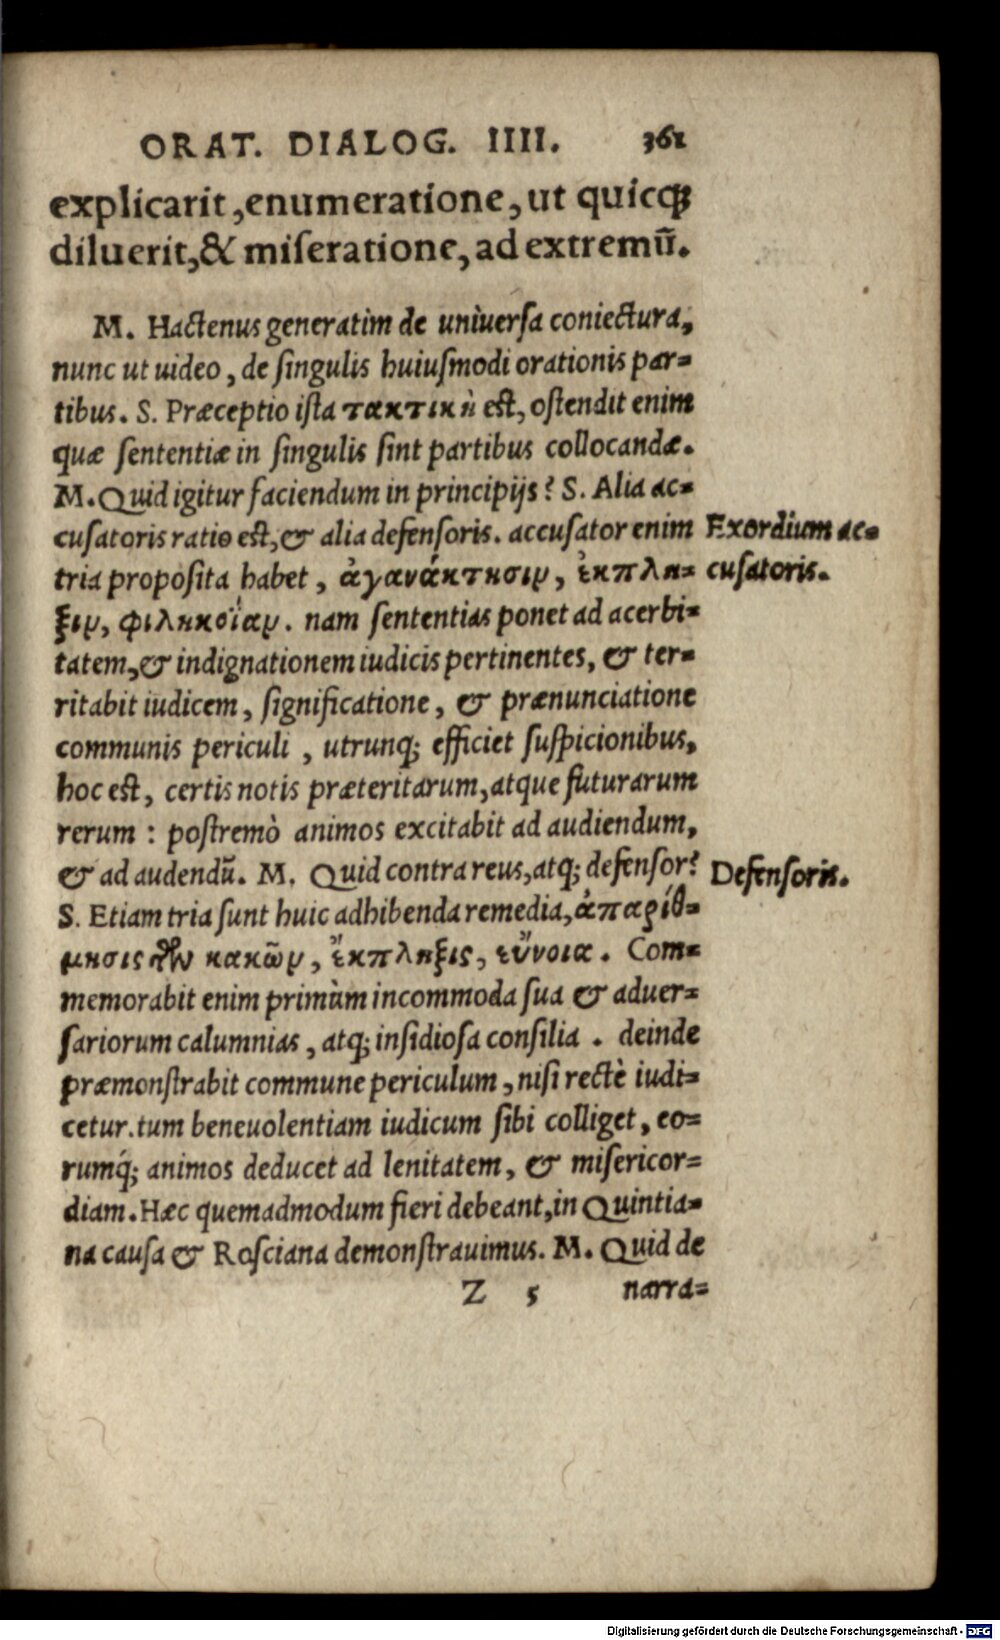 ORAT. DIALOG. IIII. 361
explicarit, enumeratione, ut quicq̃
diluerit, & miſeratione, ad extremũ.
M. Hactenus generatim de uniuerſa coniectura,
nunc ut uideo, de ſingulis huiuſmodi orationis par=
tibus. S. Præceptio iſta τακτικὴ eſt, oſtendit enim
quæ ſententiæ in ſingulis ſint partibus collocandæ.
M. Quid igitur faciendum in principijs? S. Alia ac=
cuſatoris ratio eſt, & alia defenſoris. accuſator enim
Exordium ac=
cuſatoris.
tria propoſita habet, ἀγανάκτησιν, ἔκπλη=
ξιν, φιληκοΐαν. nam ſententias ponet ad acerbi=
tatem, & indignationem iudicis pertinentes, & ter=
ritabit iudicem, ſignificatione, & prænunciatione
communis periculi, utrunq; efficiet ſuſpicionibus,
hoc eſt, certis notis præteritarum, atque futurarum
rerum : poſtremò animos excitabit ad audiendum,
& ad audendũ. M. Quid contra reus, atq; defenſor?
Defenſoris.
S. Etiam tria ſunt huic adhibenda remedia, ἀπαρίθ=
μησις τῶν κακῶν, ἔκπληξις, εὔνοια. Com=
memorabit enim primùm incommoda ſua & aduer=
ſariorum calumnias, atq; inſidioſa conſilia. deinde
præmonſtrabit commune periculum, niſi rectè iudi=
cetur. tum beneuolentiam iudicum ſibi colliget, eo=
rumq́; animos deducet ad lenitatem, & miſericor=
diam. Hæc quemadmodum fieri debeant, in Quintia=
na cauſa & Roſciana demonſtrauimus. M. Quid de
Z 5 narra=
Digitalisierung gefördert durch die Deutsche Forschungsgemeinschaft - DFG